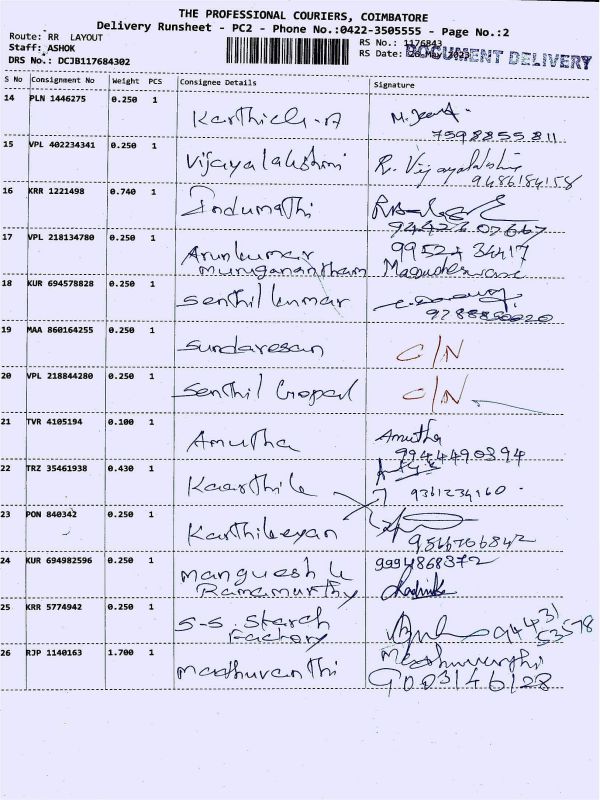 THE PROFESSIONAL COURIERS, COIMBATORE
Delivery Runsheet - PC2 - Phone No.:0422-3505555 - Page No.:2
Route: RR LAYOUT
RS No.: 1176843
Staff: ASHOK
RS Date: 26-May-2023
DOCUMENT DELIVERY
DRS No.: DCJB117684302
S No Consignment No Weight PCS Consignee Details Signature
14 PLN 1446275 0.250 1 Karthick-A
7598855811
15 VPL 402234341 0.250 1 Vijayalakshmi R. Vijayalakshmi
9486184158
16 KRR 1221498 0.740 1 Indumathi
17 VPL 218134780 0.250 1 Arunkumar 99524 34417
Muruganantham
18 KUR 694578828 0.250 1 Senthil kumar
9788880020
19 MAA 860164255 0.250 1 Sundaresan C/N
20 VPL 218844280 0.250 1 Senthil Gopal C/N
21 TVR 4105194 0.100 1 Amutha Amutha
9944490394
22 TRZ 35461938 0.430 1 Kaarthik
9361234160
23 PON 840342 0.250 1 Karthikeyan
9566706842
24 KUR 694982596 0.250 1 Manguesh k 9994868372
Ramamurthy
25 KRR 5774942 0.250 1 S-S. Starch 94431
Factory 53578
26 RJP 1140163 1.700 1 Madhuvanthi Madhuvanthi
9003146128